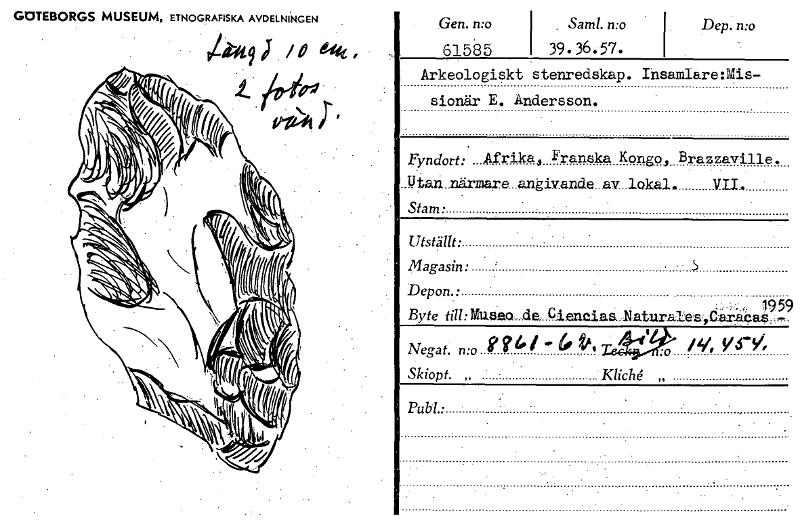 GÖTEBORGS MUSEUM, ETNOGRAFISKA AVDELNINGEN
Längd 10 cm.
2 fotos
vänd.
Gen. n:o Saml. n:o Dep. n:o
61585 39.36.57.
Arkeologiskt stenredskap. Insamlare:Mis-
sionär E. Andersson.
Fyndort: Afrika, Franska Kongo, Brazzaville.
Utan närmare angivande av lokal. VII.
Stam:
Utställt:
Magasin:
Depon.:
1959
Byte till: Museo de Ciencias Naturales,Caracas -
Bild
Negat. n:o 8861-62. Teckn. n:o 14.454.
Skiopt. „ Kliché „
Publ.: